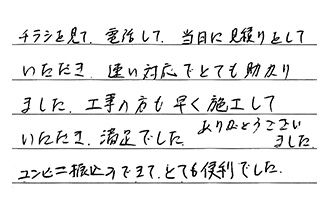 チラシを見て、電話して、当日に見積りをして
いただき、速い対応でとても助かり
ました。工事の方も早く施工して
いただき、満足でした。ありがとうござい
ました。
コンビニ振込みできて、とても便利でした。